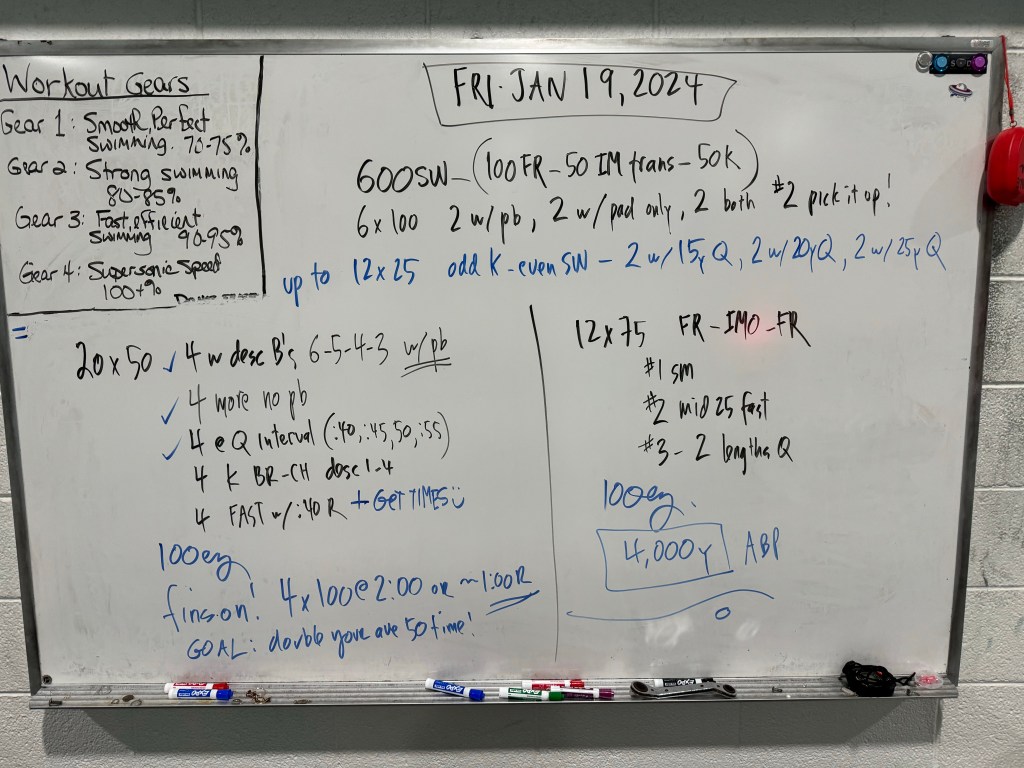 Workout Gears
Gear 1: Smooth, Perfect
swimming. 70-75%
Gear 2: Strong swimming
80-85%
Gear 3: Fast, efficient
swimming 90-95%
Gear 4: Supersonic Speed
100+%
FRI. JAN 19, 2024
600 SW - (100 FR - 50 IM trans - 50 K)
6 x 100 2 w/pb, 2 w/pad only, 2 both #2 pick it up!
up to 12 x 25 odd K - even SW - 2 w/15y Q, 2 w/20y Q, 2 w/25y Q
=
20 x 50 ✓ 4 w desc B's 6-5-4-3 w/pb
✓ 4 more no pb
✓ 4 @ Q interval (:40, :45, 50, :55)
4 K BR-CH desc 1-4
4 FAST w/ :40 R + GET TIMES
100 ez
fins on! 4 x 100 @ 2:00 or ~1:00 R
GOAL: double your ave 50 time!
12 x 75 FR - IMO - FR
#1 sm
#2 mid 25 fast
#3 - 2 lengths Q
100 ez.
4,000y ABP
EXPO
EXPO
EXPO